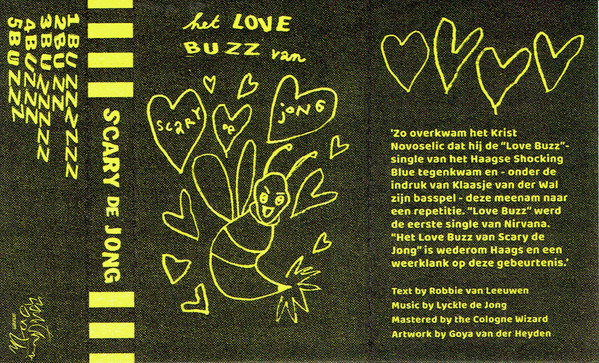 1 BUZZZZZZ
2 BUZZ
3 BUZZZZZ
4 BUZZZ
5 BUZZZ
SCARY DE JONG
het LOVE
BUZZ van
SCARY DE JONG
'Zo overkwam het Krist
Novoselic dat hij de "Love Buzz"-
single van het Haagse Shocking
Blue tegenkwam en - onder de
indruk van Klaasje van der Wal
zijn basspel - deze meenam naar
een repetitie. "Love Buzz" werd
de eerste single van Nirvana.
"Het Love Buzz van Scary de
Jong" is wederom Haags en een
weerklank op deze gebeurtenis.'
Text by Robbie van Leeuwen
Music by Lyckle de Jong
Mastered by the Cologne Wizard
Artwork by Goya van der Heyden